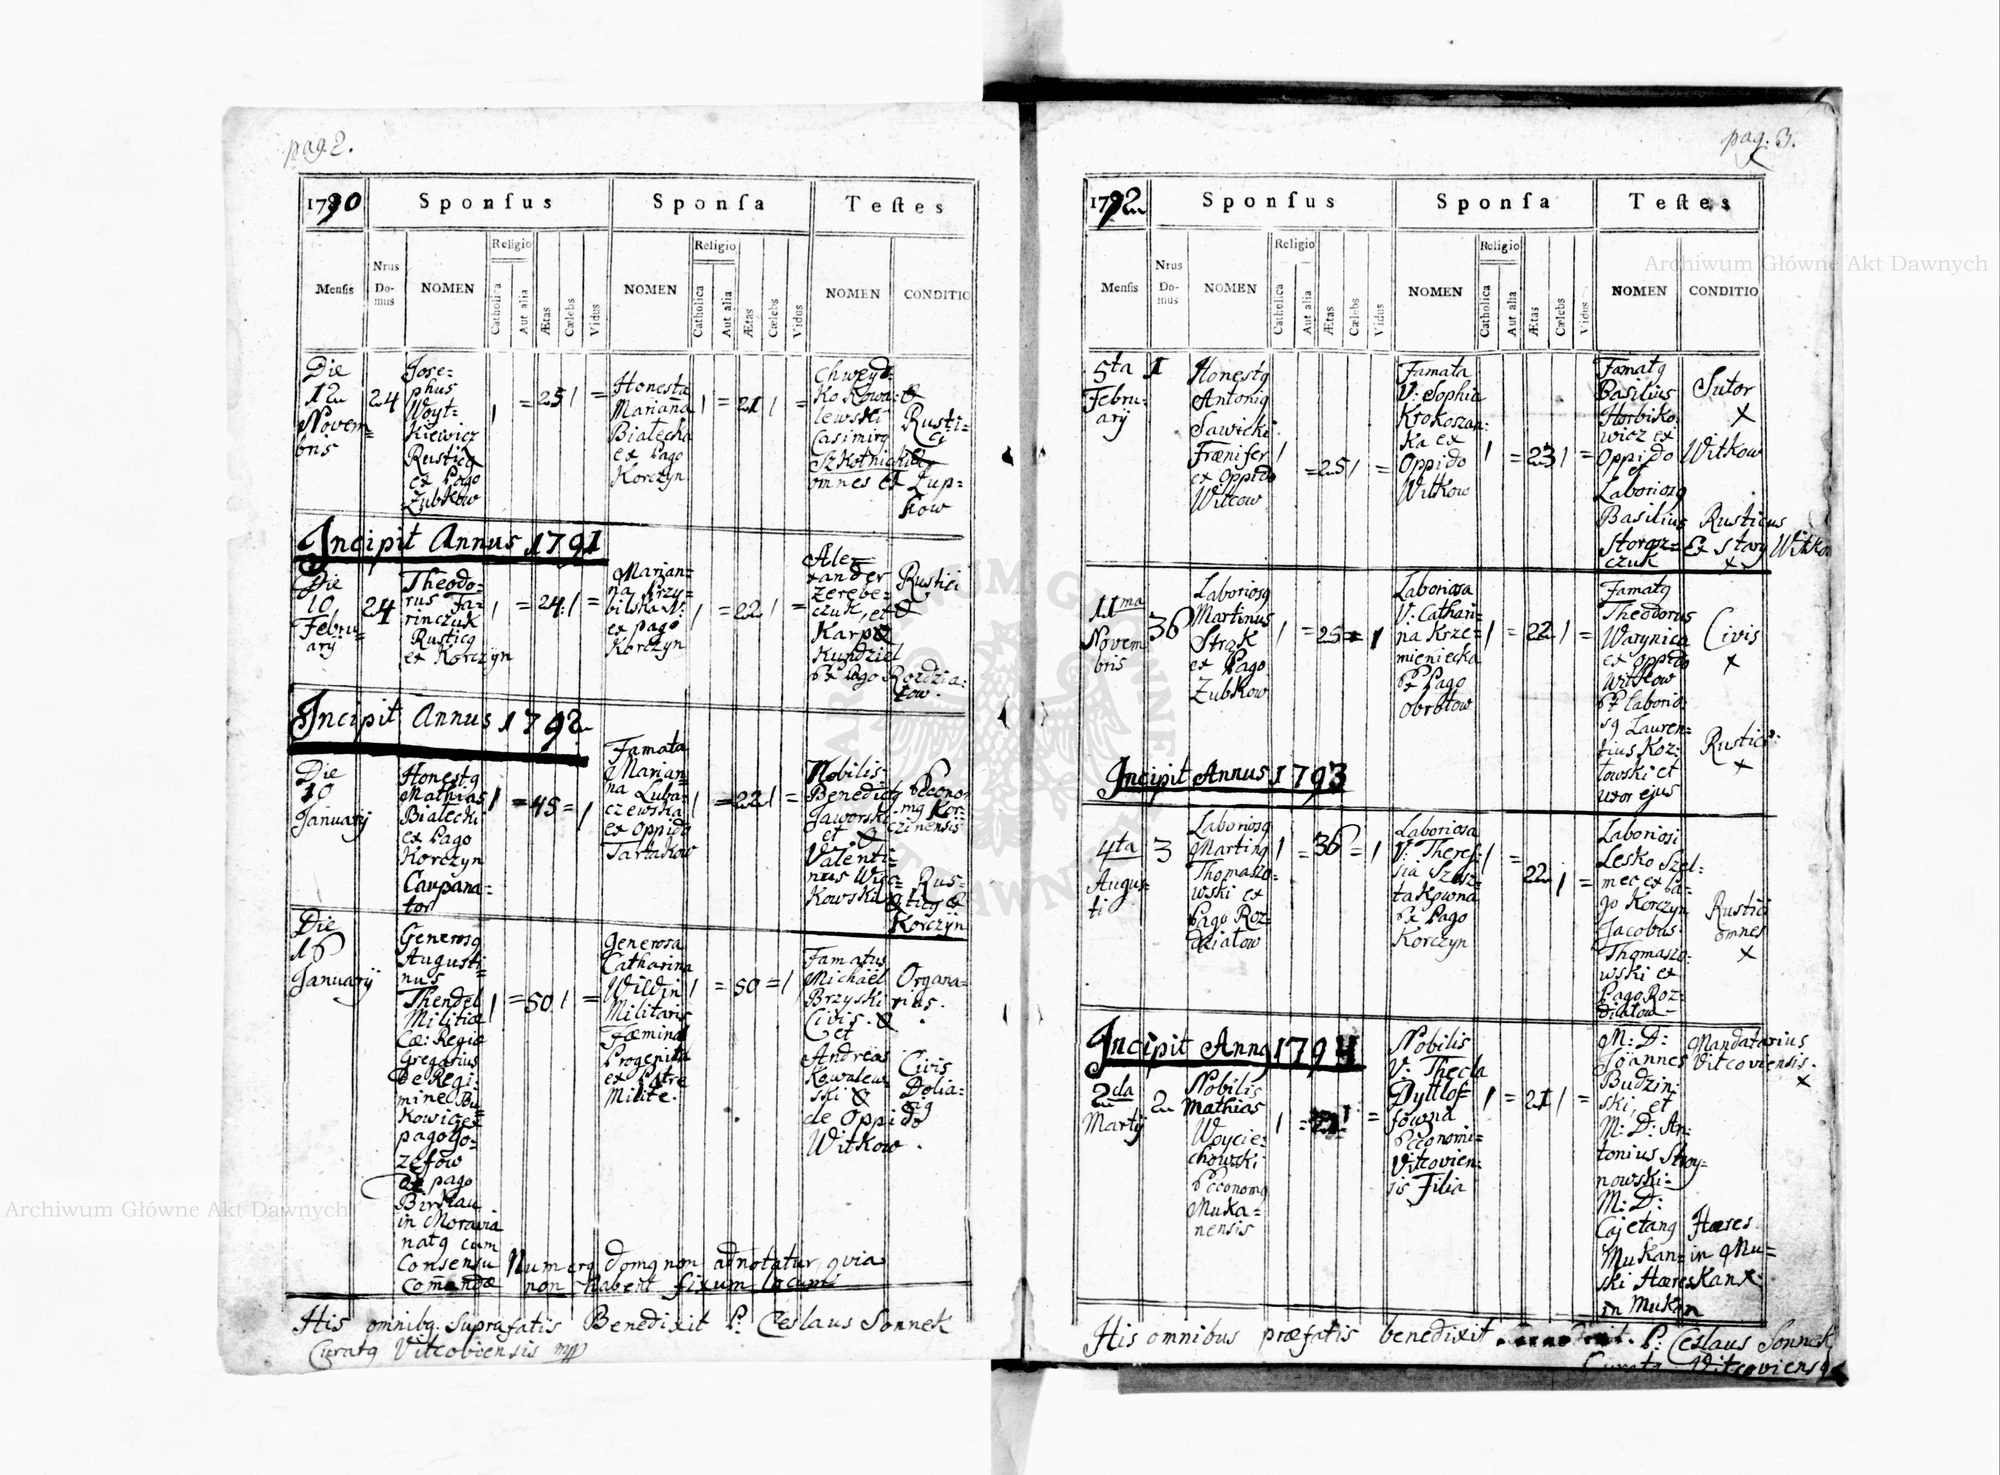 pag. 2.
1790
Sponsus
Sponsa
Testes
Mensis
Nrus Do-mus
NOMEN
Religio
Catholica
Aut alia
Ætas
Cælebs
Vidus
NOMEN
Religio
Catholica
Aut alia
Ætas
Cælebs
Vidus
NOMEN
CONDITIO
Die
12
Novem=
bris
24
Jose=
phus
Woyt=
Kiewicz
Rusticq
ex Pago
Zubkow
1
=
25
1
=
Honesta
Marianna
Białecka
ex Pago
Korczyn
1
=
21
1
=
Chweyd=
Ko Kowa=
lewski
Casimirq
Szkotnicki
omnes ex Zup=
kow
et
Rusti=
ci
Incipit Annus 1791
Die
10
Febru=
arij
24
Theodo=
rus Ta=
rinczuk
Rusticq
ex Korczyn
1
=
24
1
=
Marian=
na Krzy=
bilska V:
ex pago
Korczyn
1
=
22
1
=
Ale=
xander
Zerebe=
czuk, et
Karp
Kundziel
Ex Pago Rozdzia=
łow.
Rustici
Incipit Annus 1792
Die
10
Januarij
Honestq
Mathias
Białecki
ex Pago
Korczyn
Caupana=
tor
1
=
45
=
1
Famata
Marian=
na Luba=
czewska
ex Oppido
Tartakow
1
=
22
1
=
Nobilis
Benedictq
Jaworski
et
Valenti=
nus Wyso=
Kowski
Œcono=
mq Kor=
czinensis
Rus=
ticq
Korczyn
Die
16
Januarij
Generosq
Augusti=
nus
Thendel
Militiæ
Cæ: Regiæ
Gregarius
De Regi=
mine Bu=
Kowic ex
pago Jo=
zefow
ex pago
Birklau
in Moravia
natq cum
Consensu
Comendæ
1
=
50
1
=
Generosa
Catharina
Wildin
Militaris
Fæmina
Progenita
ex Patre
Milite.
1
=
50
=
1
Famatus
Michaël
Brzyski
Civis.
et
Andreas
Kowalew=
ski
de Oppido
Witkow.
Organa=
rius.
Civis
Dolia=
riq
Numerq domq non adnotatur quia
non habent fixum locum
His omnibq. suprafatis Benedixit P: Ceslaus Sonnek
Curatq Vitcoviensis mpp
pag. 3.
1792
Sponsus
Sponsa
Testes
Mensis
Nrus Do-mus
NOMEN
Religio
Catholica
Aut alia
Ætas
Cælebs
Vidus
NOMEN
Religio
Catholica
Aut alia
Ætas
Cælebs
Vidus
NOMEN
CONDITIO
5ta
Febru=
arij
1
Honestq
Antoniq
Sawicki
Frænifer
ex Oppido
Witcow
1
=
25
1
=
Famata
V: Sophia
Krokoszan=
Ka ex
Oppido
Witkow
1
=
23
1
=
Famatq
Basilius
Horbiko=
wicz ex
Oppido
et
Laboriosq
Basilius
Storoz=
czuk
Sutor
x
Witkow
Rusticus
Ex Stary Witko
x
11ma
Novem
bris
36
Laboriosq
Martinus
Strąk
ex Pago
Zubkow
1
=
25
=
1
Laboriosa
V: Cathari=
na Krze=
mieniecka
Ex Pago
Obrotow
1
=
22
1
=
Famatq
Theodorus
Warynica
ex Oppido
Witkow
Et laborio=
sq Lauren=
tius Koz=
łowski et
uxor ejus
Civis
x
Rustici
x
Incipit Annus 1793
4ta
Augus=
ti
3
Laboriosq
Martinq
Thomaszo=
wski ex
Pago Roz=
działow
1
=
36
=
1
Laboriosa
V: There=
sia Szosz=
takowna
Ex Pago
Korczyn
1
=
22
1
=
Laboriosi
Lesko Szel=
mec ex Pa=
go Korczyn
Jacobus
Thomaszo=
wski ex
Pago Roz=
działow
Rustici
omnes
x
Incipit Annq 1794
2da
Martij
2
Nobilis
Mathias
Woycie=
chowski
Œconomq
Muka=
nensis
1
=
1
=
Nobilis
V: Thecla
Dyttlof=
fowna
Œconomi=
Vitcovien=
sis Filia
1
=
21
1
=
M: D:
Joannes
Budzin=
ski, et
M: D: An=
tonius Stroy=
nowski
M: D:
Cajetanq
Mukan=
ski Hæres
in Mukan
Mandatarius
Vitcoviensis.
x
Hæres
in Mu=
Kan x
His omnibus præfatis benedixit P: Ceslaus Sonnek
Curatq Vitcoviensq
Archiwum Główne Akt Dawnych
Archiwum Główne Akt Dawnych
ARCHIWUM GŁÓWNE AKT DAWNYCH